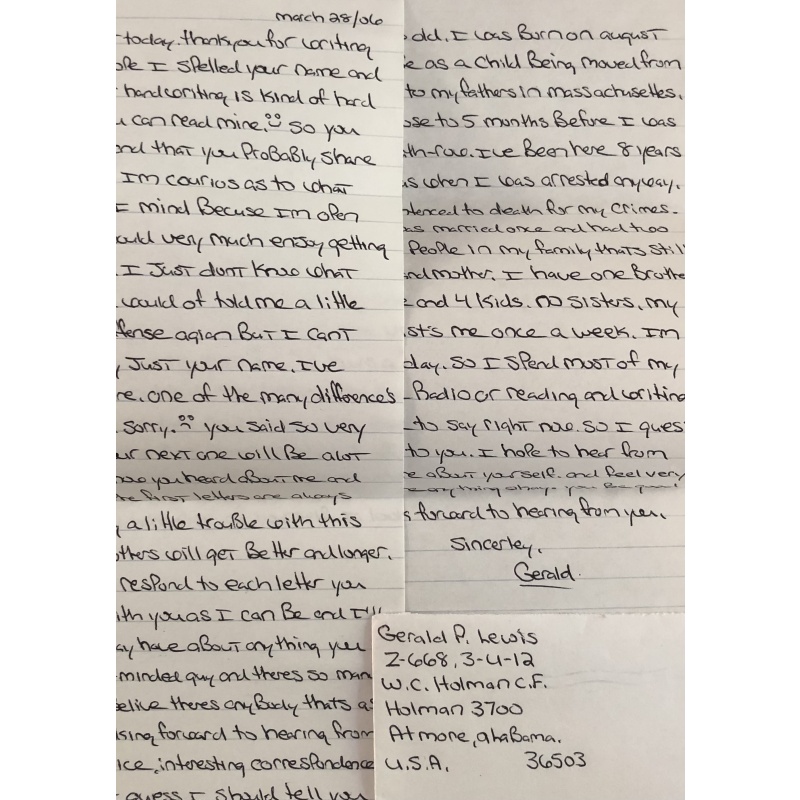 march 28/06
today. thankyou for writing
I Spelled your name and
handwriting is kind of hard
can read mine. So you
that you ProBaBly share
Im courios as to what
I mind Becuse Im open
very much enjoy getting
I Just dont Know what
would of told me a little
agian But I can't
Just your name. I've
one of the many difference's
Sorry. you said so very
next one will Be alot
you heard aBout me and
first letters are always
a little trouBle with this
will get Better and longer.
respond to each letter you
you as I can Be and I'll
have aBout anything you
minded guy and theres so
theres anyBody thats
forward to hearing from
interesting correspondence
guess I should tell you
old. I was Burn on august
as a child Being moved from
to my fathers in massachusettes.
to 5 months Before I was
I've Been here 8 years
when I was arrested anyway.
to death for my crimes.
married once and had two
People in my family thats still
I have one
and 4 kids. no sisters, my
me once a week. Im
day. So I spend most of my
Radio or reading and writing
to say right now. So I
to you. I hope to hear from
aBout yourself. and feel very
forward to hearing from you.
Sincerley,
Gerald
Gerald P. Lewis
Z-668, 3-U-12
W.C. Holman C.F.
Holman 3700
Atmore, alaBama.
U.S.A. 36503